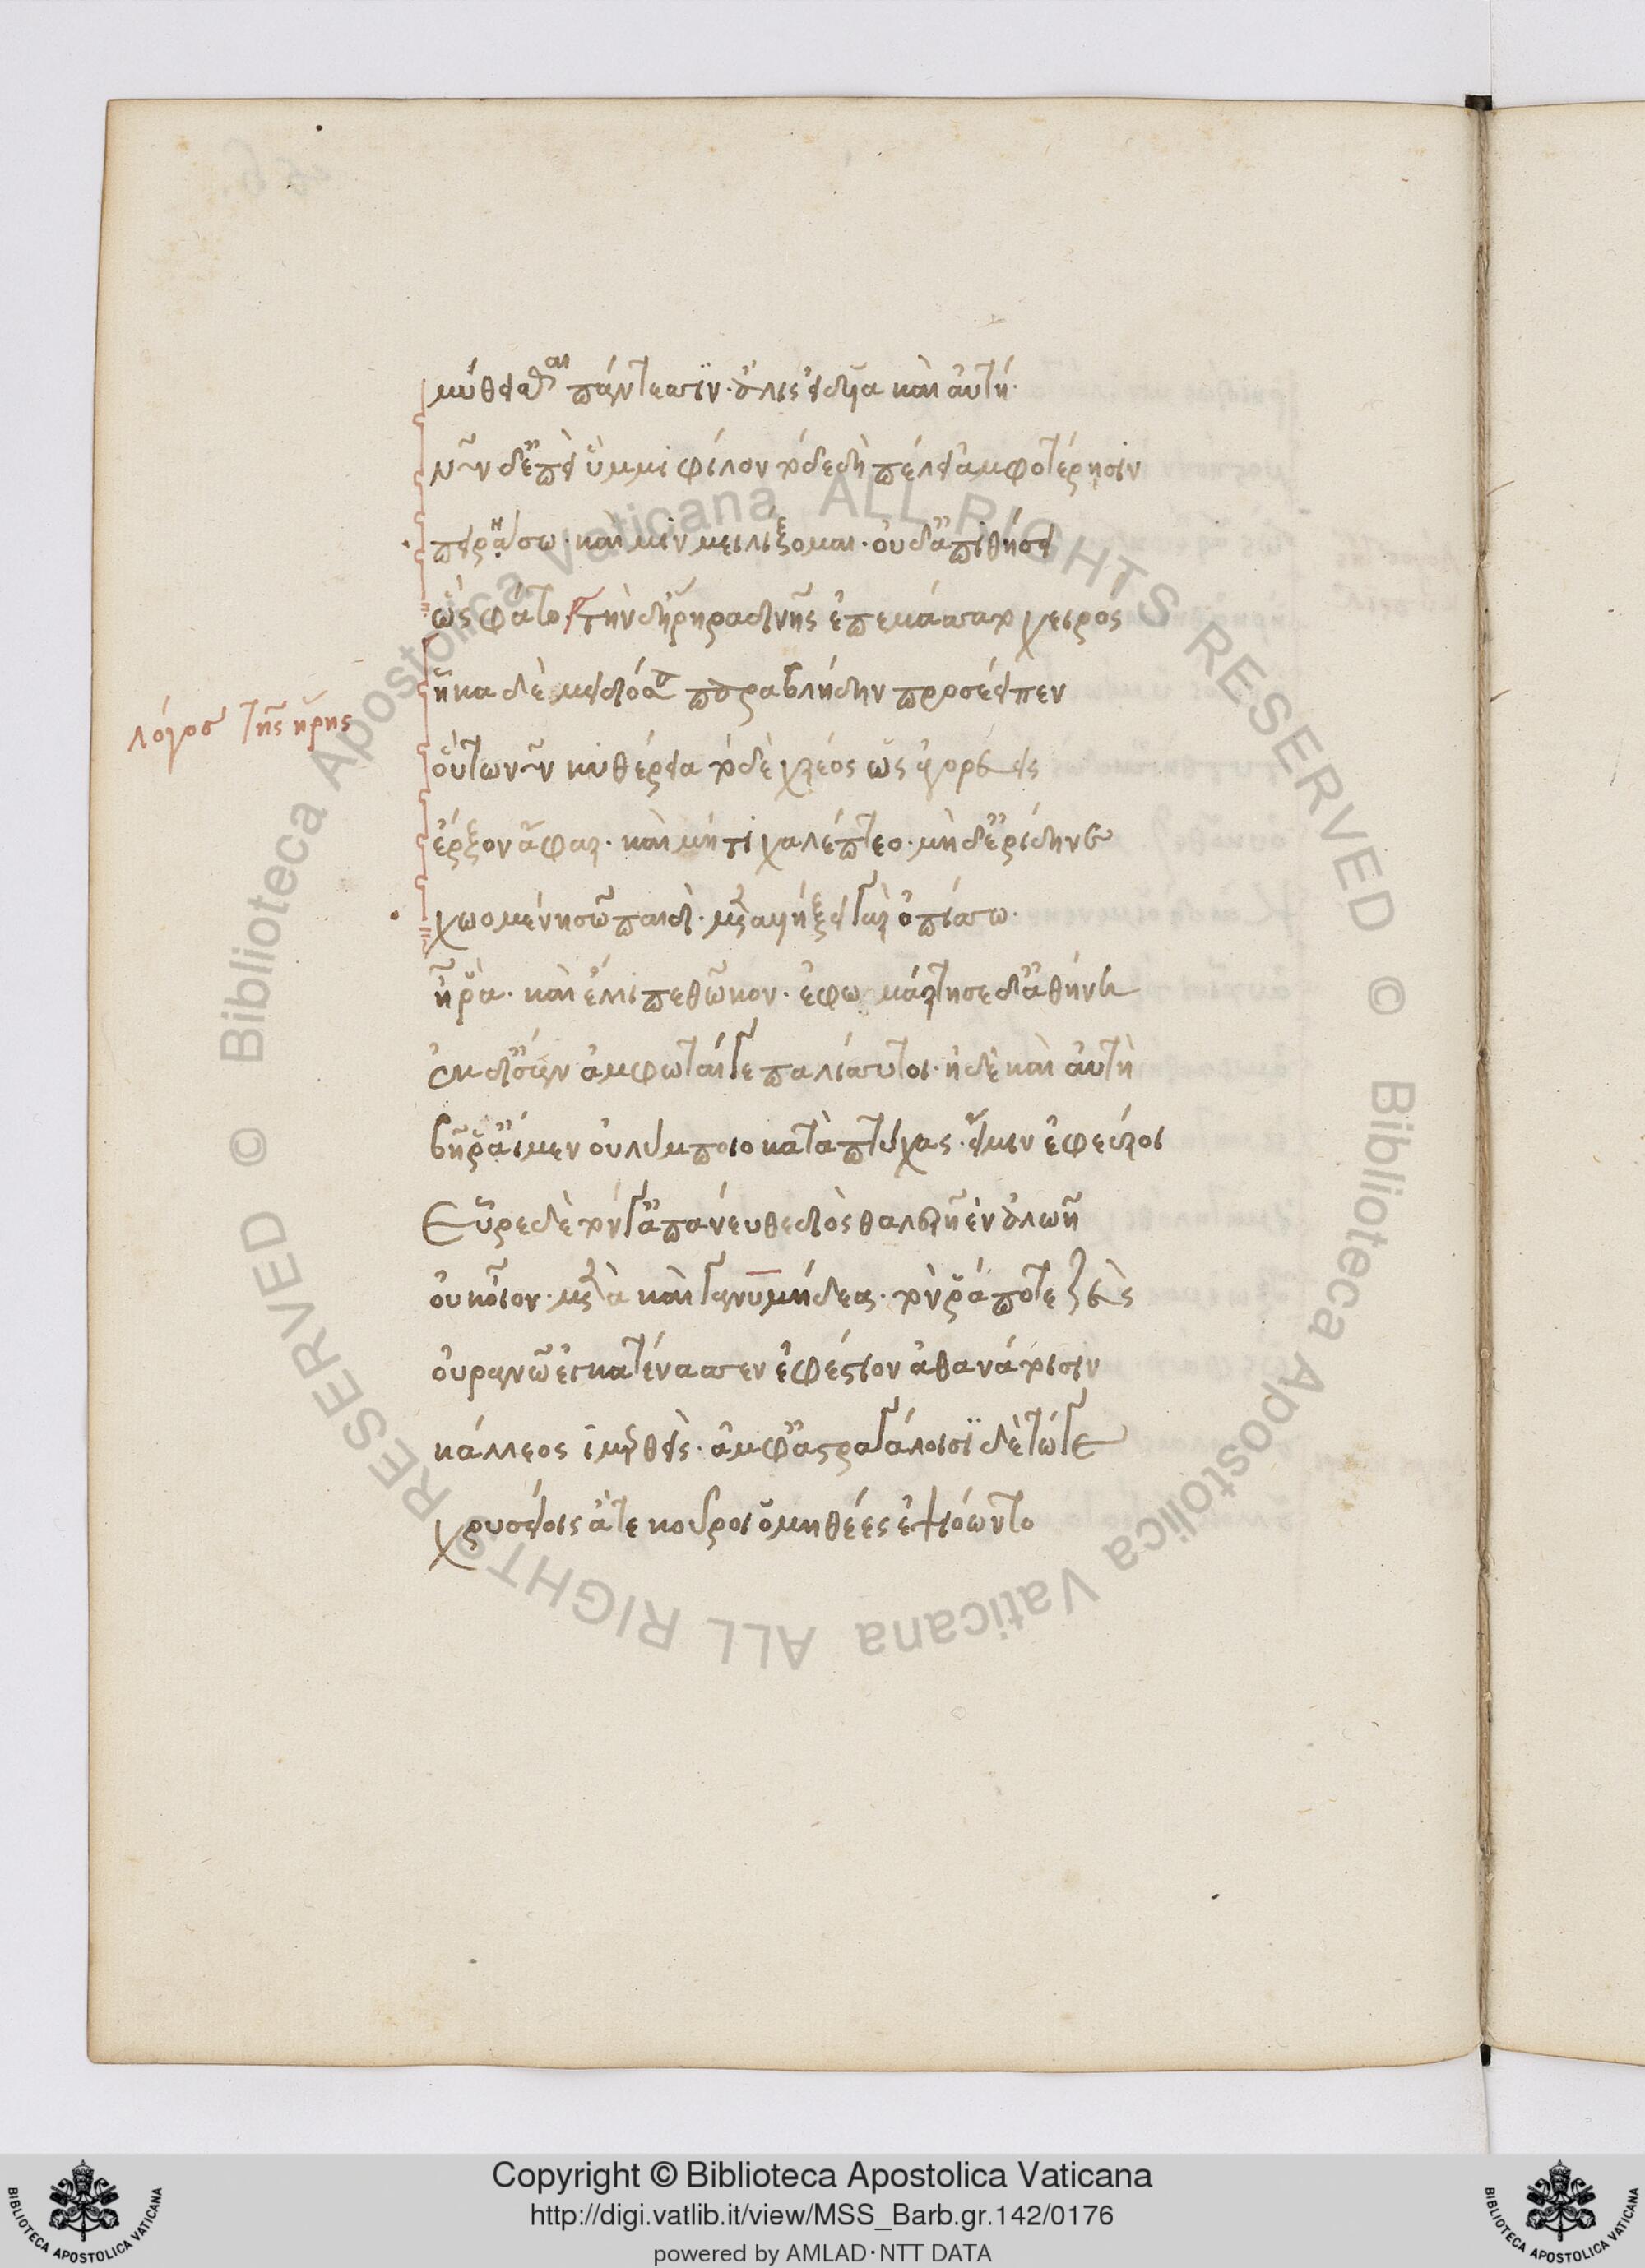 μύθεῖσθαι πάντεσσιν· ἅλις εἰδυῖα καὶ αὐτή·
νῦν δ' ἐπεὶ ὔμμι φίλον τόδε δὴ πέλει ἀμφοτέρῃσιν
πειρήσω· καί μιν μειλίξομαι· οὐδ' ἀπιθήσει
ὣς φάτο τὴν δ' ἥρη ῥαδινῆς ἐπεμάσσατο χειρός
ἦκα δὲ μειδιόωσα παραβλήδην προσέειπεν
οὕτω νῦν κυθέρεια τόδε χρέος ὡς ἀγορεύεις
ἔρξον ἄφαρ· καὶ μή τι χαλέπτεο· μηδ' ἐρίδηνε
χωομένη σῷ παιδί· μεταλλήξει γὰρ ὀπίσσω·
λόγος τῆς ἥρης
ἦ ῥα· καὶ ἔλλιπε θῶκον· ἐφωμάρτησε δ' ἀθήνη
ἐκ δ' ἴσαν ἄμφω ταί γε παλίσσυτοι· ἡ δὲ καὶ αὐτὴ
βῆ ῥ' ἴμεν οὐλύμποιο κατὰ πτύχας· εἴ μιν ἐφεύροι
Εὗρε δὲ τόν γ' ἀπάνευθε διὸς θαλερῇ ἐν ἀλωῇ
οὐκ οἶον· μετὰ καὶ γανυμήδεα· τόν ῥά ποτε ζεὺς
οὐρανῷ ἐγκατένασσεν ἐφέστιον ἀθανάτοισιν
κάλλεος ἱμερθείς· ἀμφ' ἀστραγάλοισι δὲ τώ γε
χρυσείοις ἅτε κοῦροι ὁμήθεες ἑψιόωντο
Copyright © Biblioteca Apostolica Vaticana
http://digi.vatlib.it/view/MSS_Barb.gr.142/0176
powered by AMLAD·NTT DATA